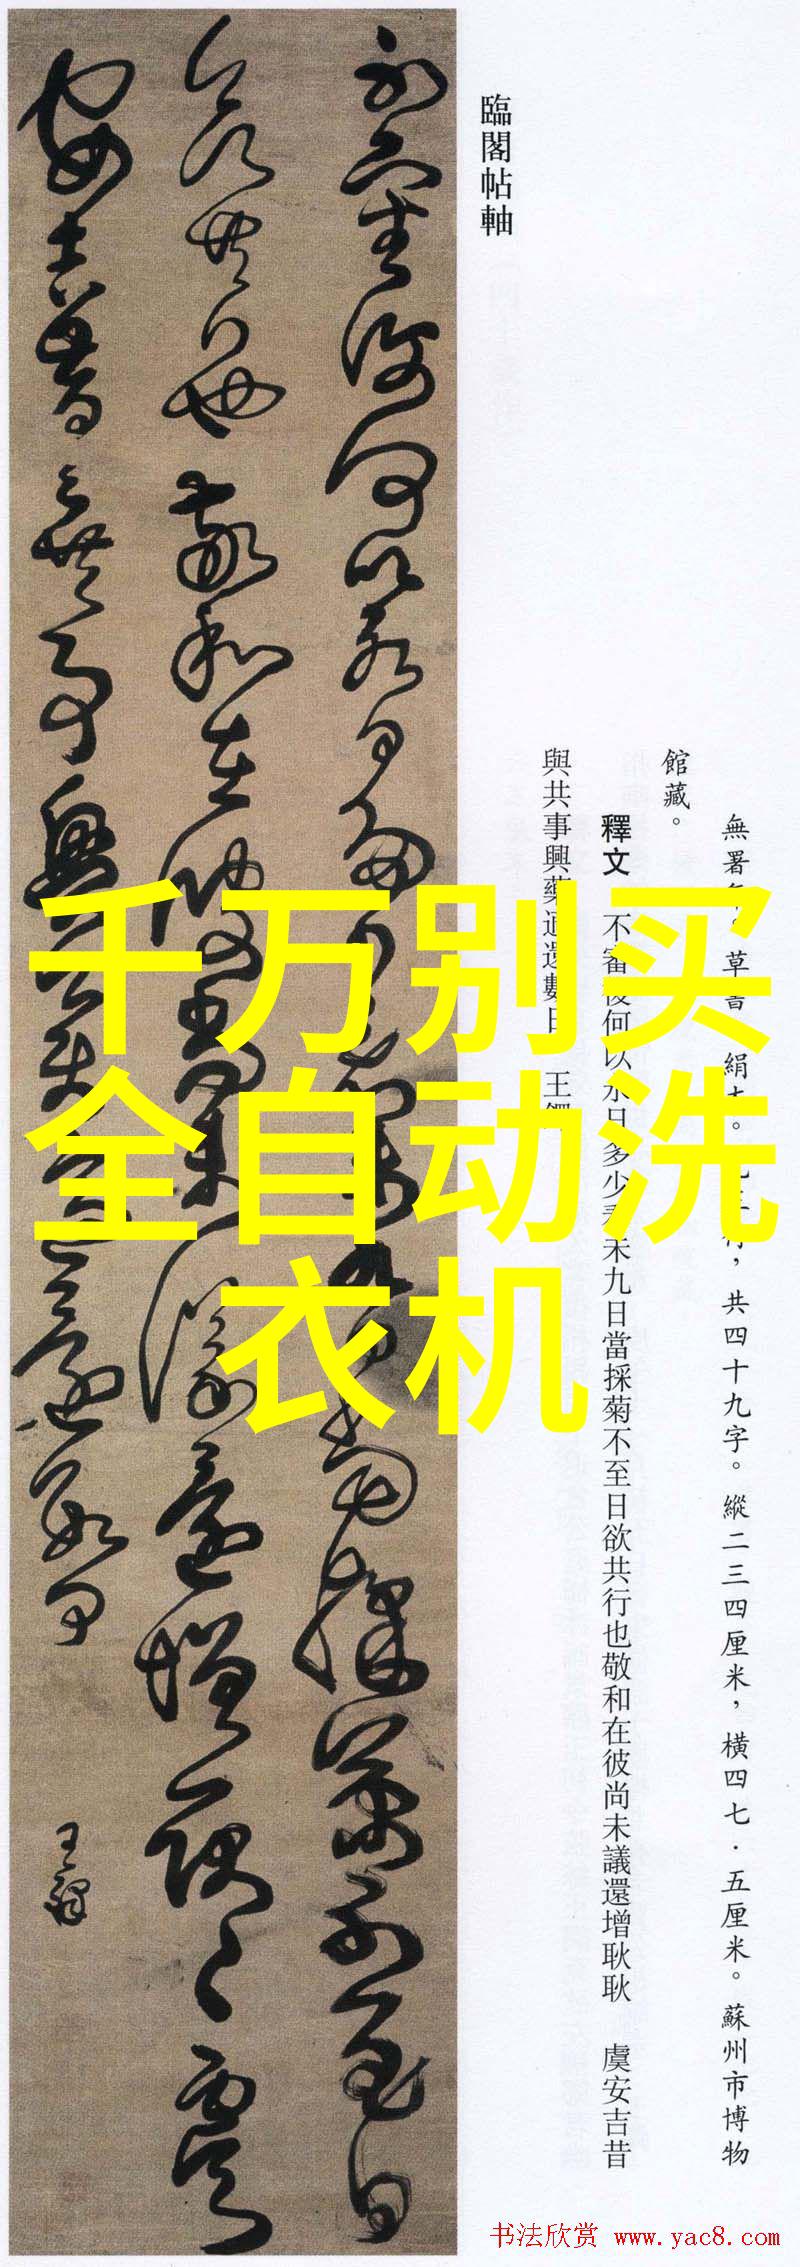 臨閣帖軸
無署年。草書
絹本。
行，共四十九字。縱二三四厘米，橫四七．五厘米。蘇州市博物
館藏。
釋文　不審復何以永日多少看未九日當採菊不至日欲共行也敬和在彼尚未議還增耿耿　虞安吉昔
與共事興藥過還數日　王鐸
千万别买
全自动洗
衣机
书法欣赏 www.yac8.com